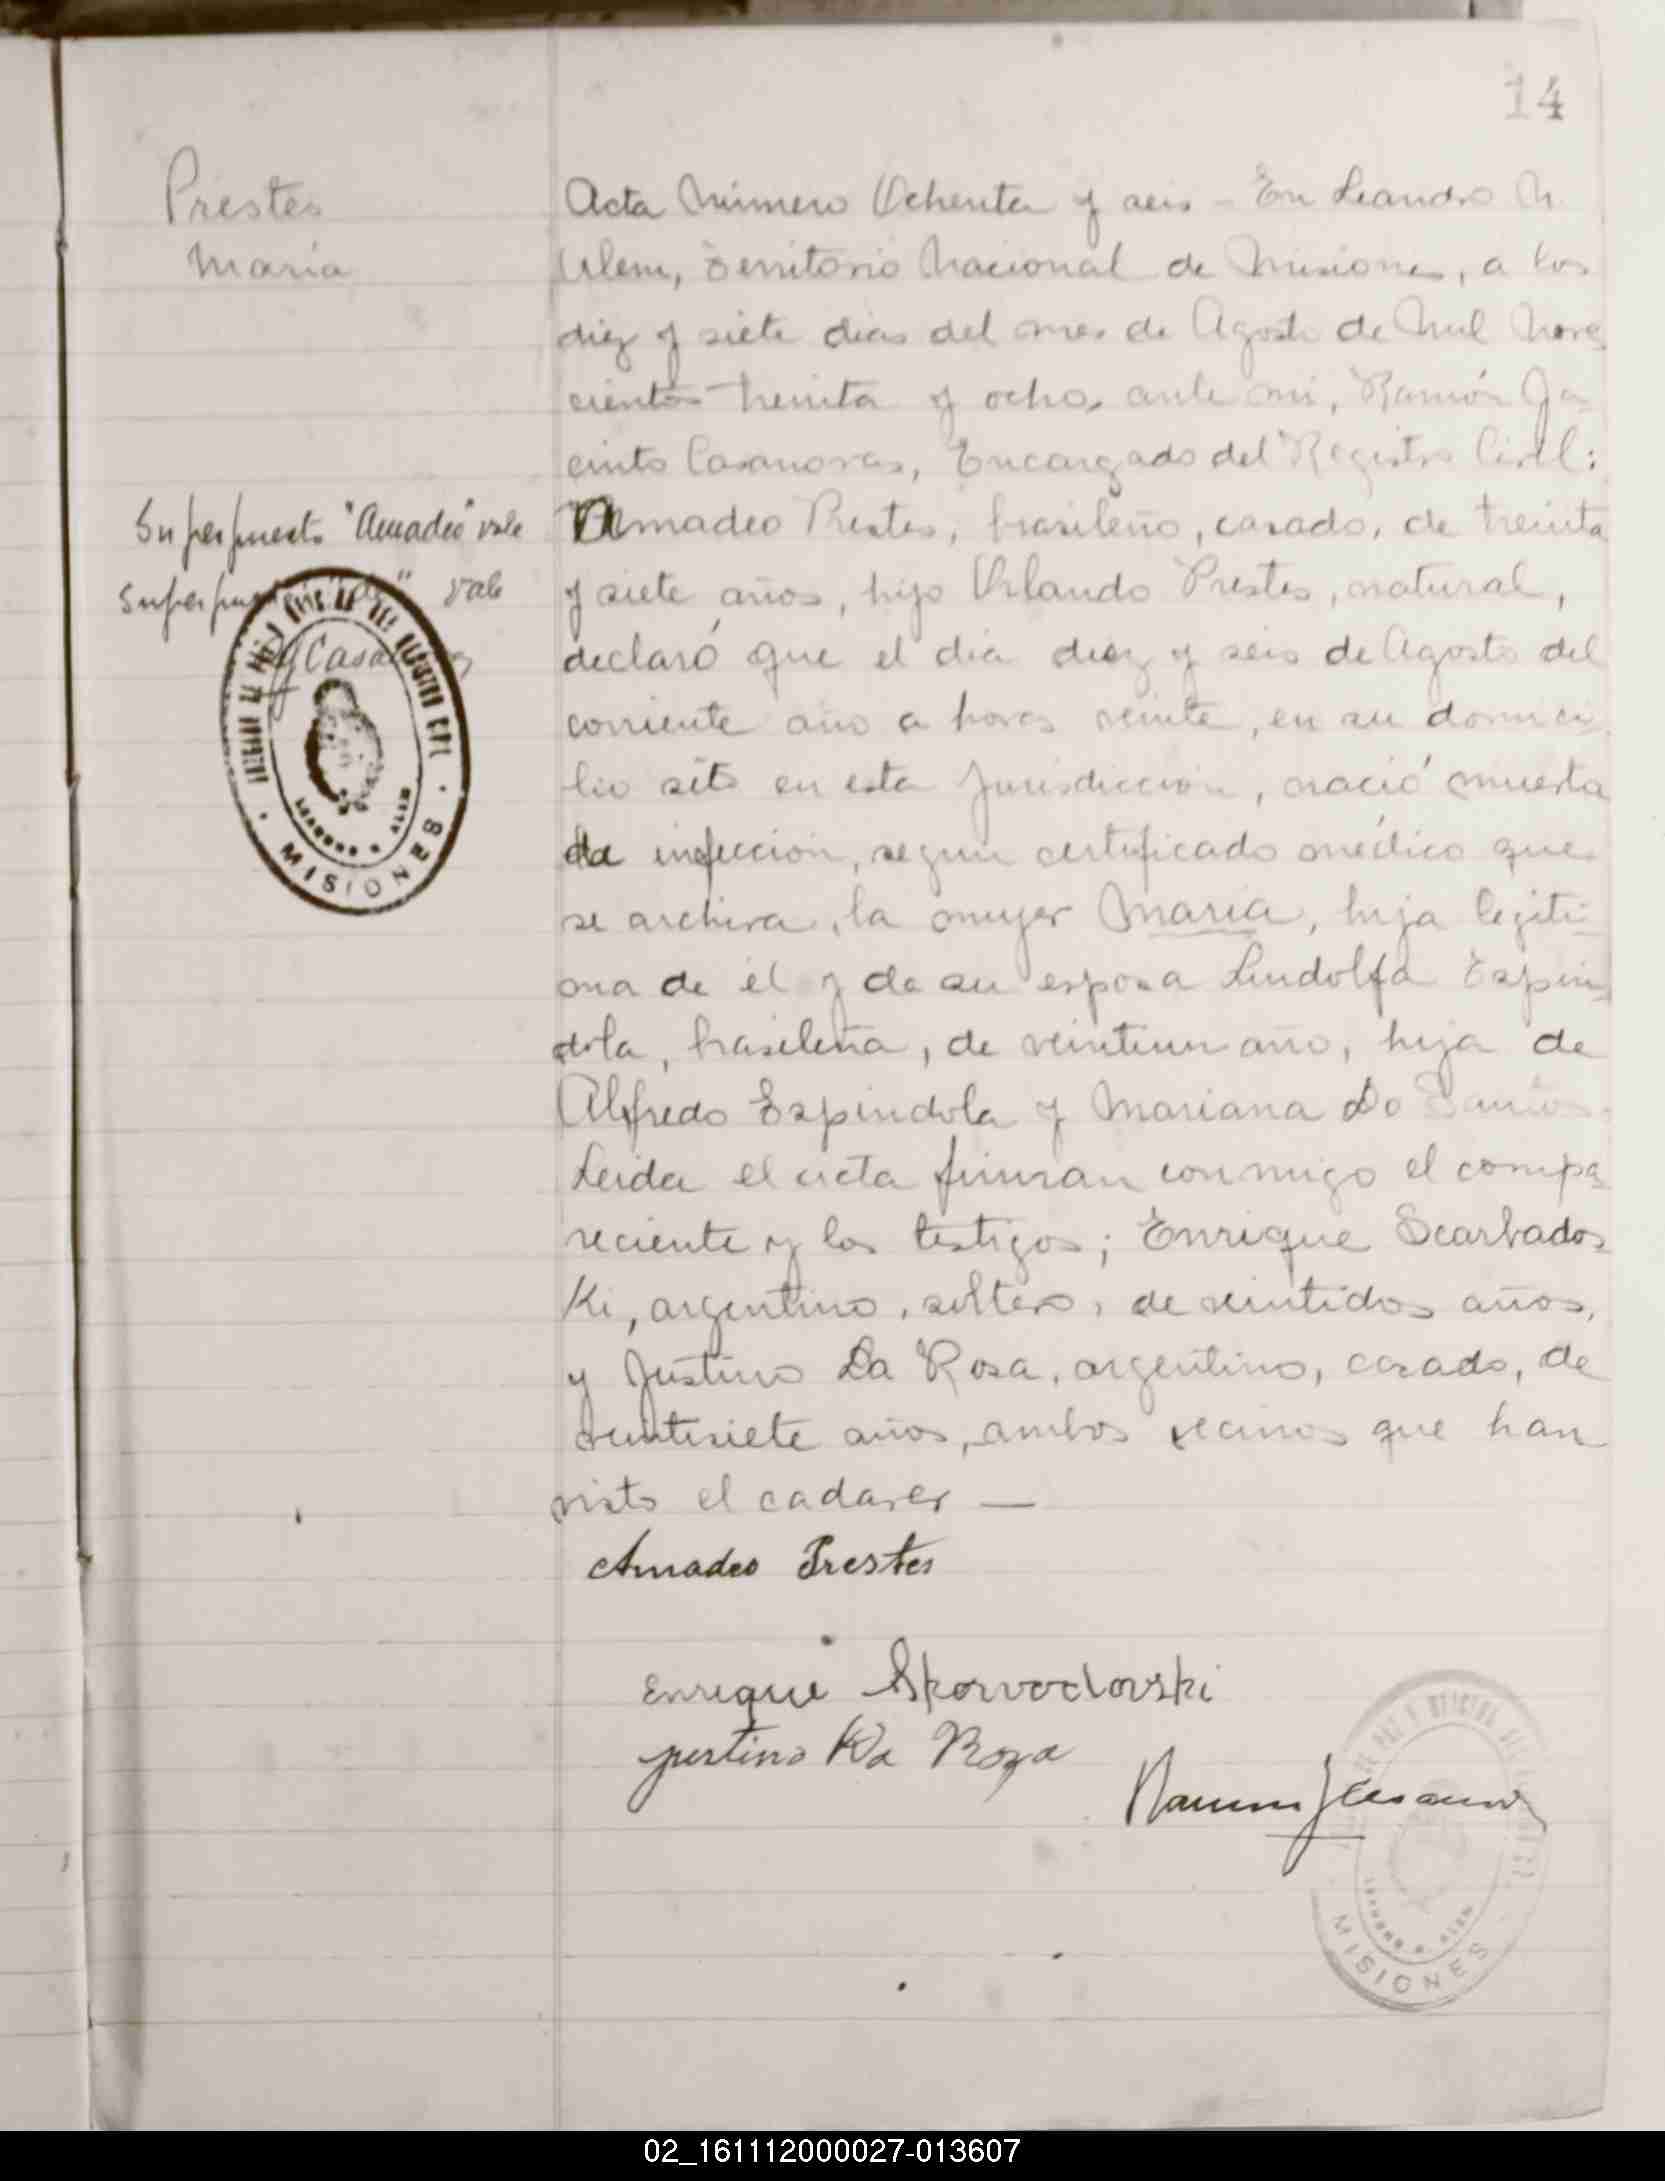 14
Prestes
María
Acta Número Ochenta y seis - En Leandro N.
Alem, Territorio Nacional de Misiones, a los
diez y siete dias del mes de Agosto de Mil Nove
cientos treinta y ocho, ante mi, Ramón Ja-
cinto Casanovas, Encargado del Registro Civil:
Amadeo Prestes, brasileño, casado, de treinta
y siete años, hijo Orlando Prestes, natural,
declaró que el dia diez y seis de Agosto del
corriente año a horas veinte, en su domici-
lio sito en esta Jurisdiccion, nació muerta
de infeccion, segun certificado médico que
se archiva, la mujer María, hija legiti-
ma de él y de su esposa Lindolfa Espin-
dola, brasileña, de veintiun año, hija de
Alfredo Espindola y Mariana Do Santos.
Leida el acta firman conmigo el compa-
reciente y los testigos; Enrique Scarbados
Ki, argentino, soltero, de veintidos años,
y Justino Da Rosa, argentino, casado, de
veintisiete años, ambos vecinos que han
visto el cadaver —
Superpuesto "Amadeo" vale
Superpuesto "de" vale
JCasanovas
LEANDRO ALEM
MISIONES
Amadeo Prestes
Enrique Skorvodovski
justino Da Roza
Ramon J Casanovas
LEANDRO ALEM
MISIONES
02_161112000027-013607